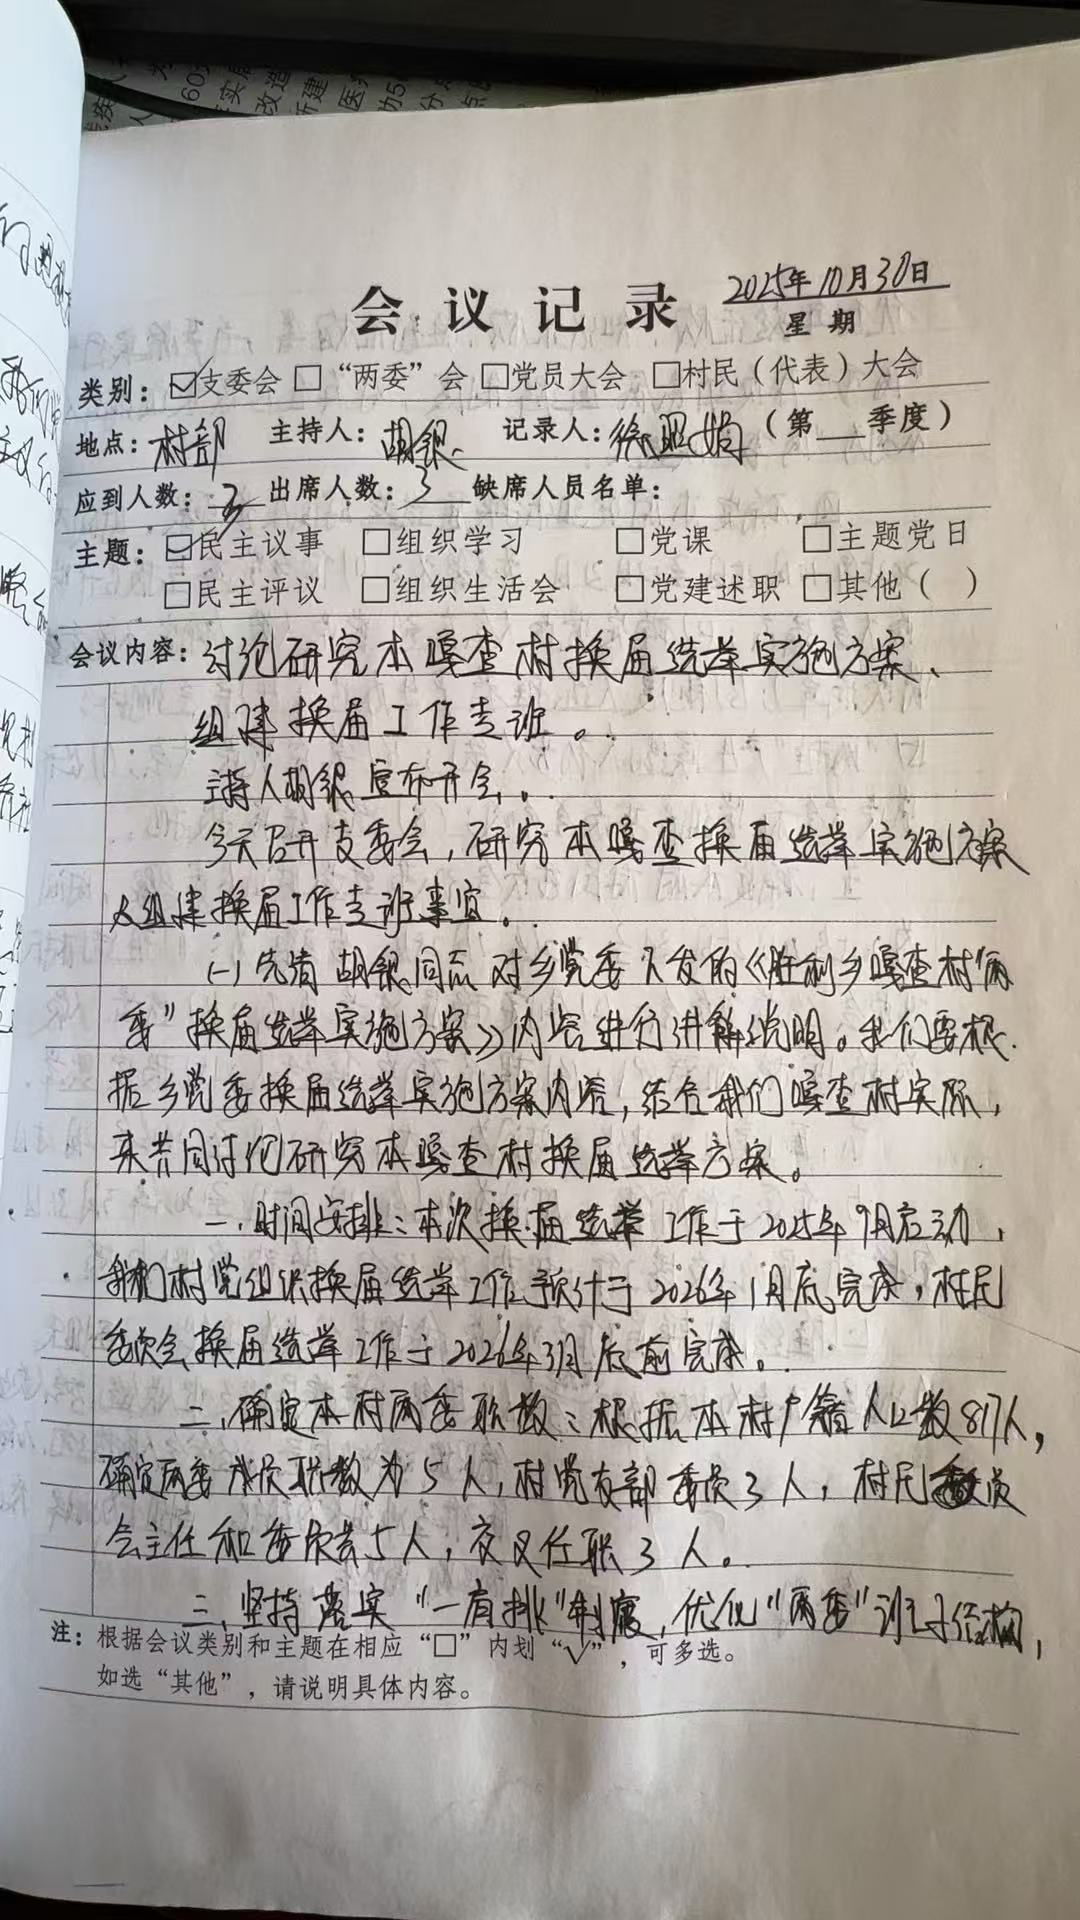 会议记录 2025年10月30日
星期
类别：☑支委会 □“两委”会 □党员大会 □村民（代表）大会
地点：村部 主持人：胡银 记录人：徐昭娟（第 季度）
应到人数：3 出席人数：3 缺席人员名单：
主题：☑民主议事 □组织学习 □党课 □主题党日
□民主评议 □组织生活会 □党建述职 □其他（ ）
会议内容：讨论研究本嘎查村换届选举实施方案、
组建换届工作专班。
主持人胡银宣布开会。
今天召开支委会，研究本嘎查换届选举实施方案
及组建换届工作专班事宜。
(一)先请胡银同志对乡党委下发的《胜利乡嘎查村“两
委”换届选举实施方案》内容进行讲解说明。我们要根
据乡党委换届选举实施方案内容，结合我们嘎查村实际，
来共同讨论研究本嘎查村换届选举方案。
一、时间安排：本次换届选举工作于2025年9月启动，
我们村党组织换届选举工作预计于2026年1月底完成，村民
委员会换届选举工作于2026年3月底前完成。
二、确定本村两委职数：根据本村户籍人口数817人，
确定两委成员职数为5人，村党支部委员3人，村民委员
会主任和委员共5人，交叉任职3人。
三、坚持落实“一肩挑”制度，优化“两委”班子结构，
注：根据会议类别和主题在相应“□”内划“√”，可多选。
如选“其他”，请说明具体内容。